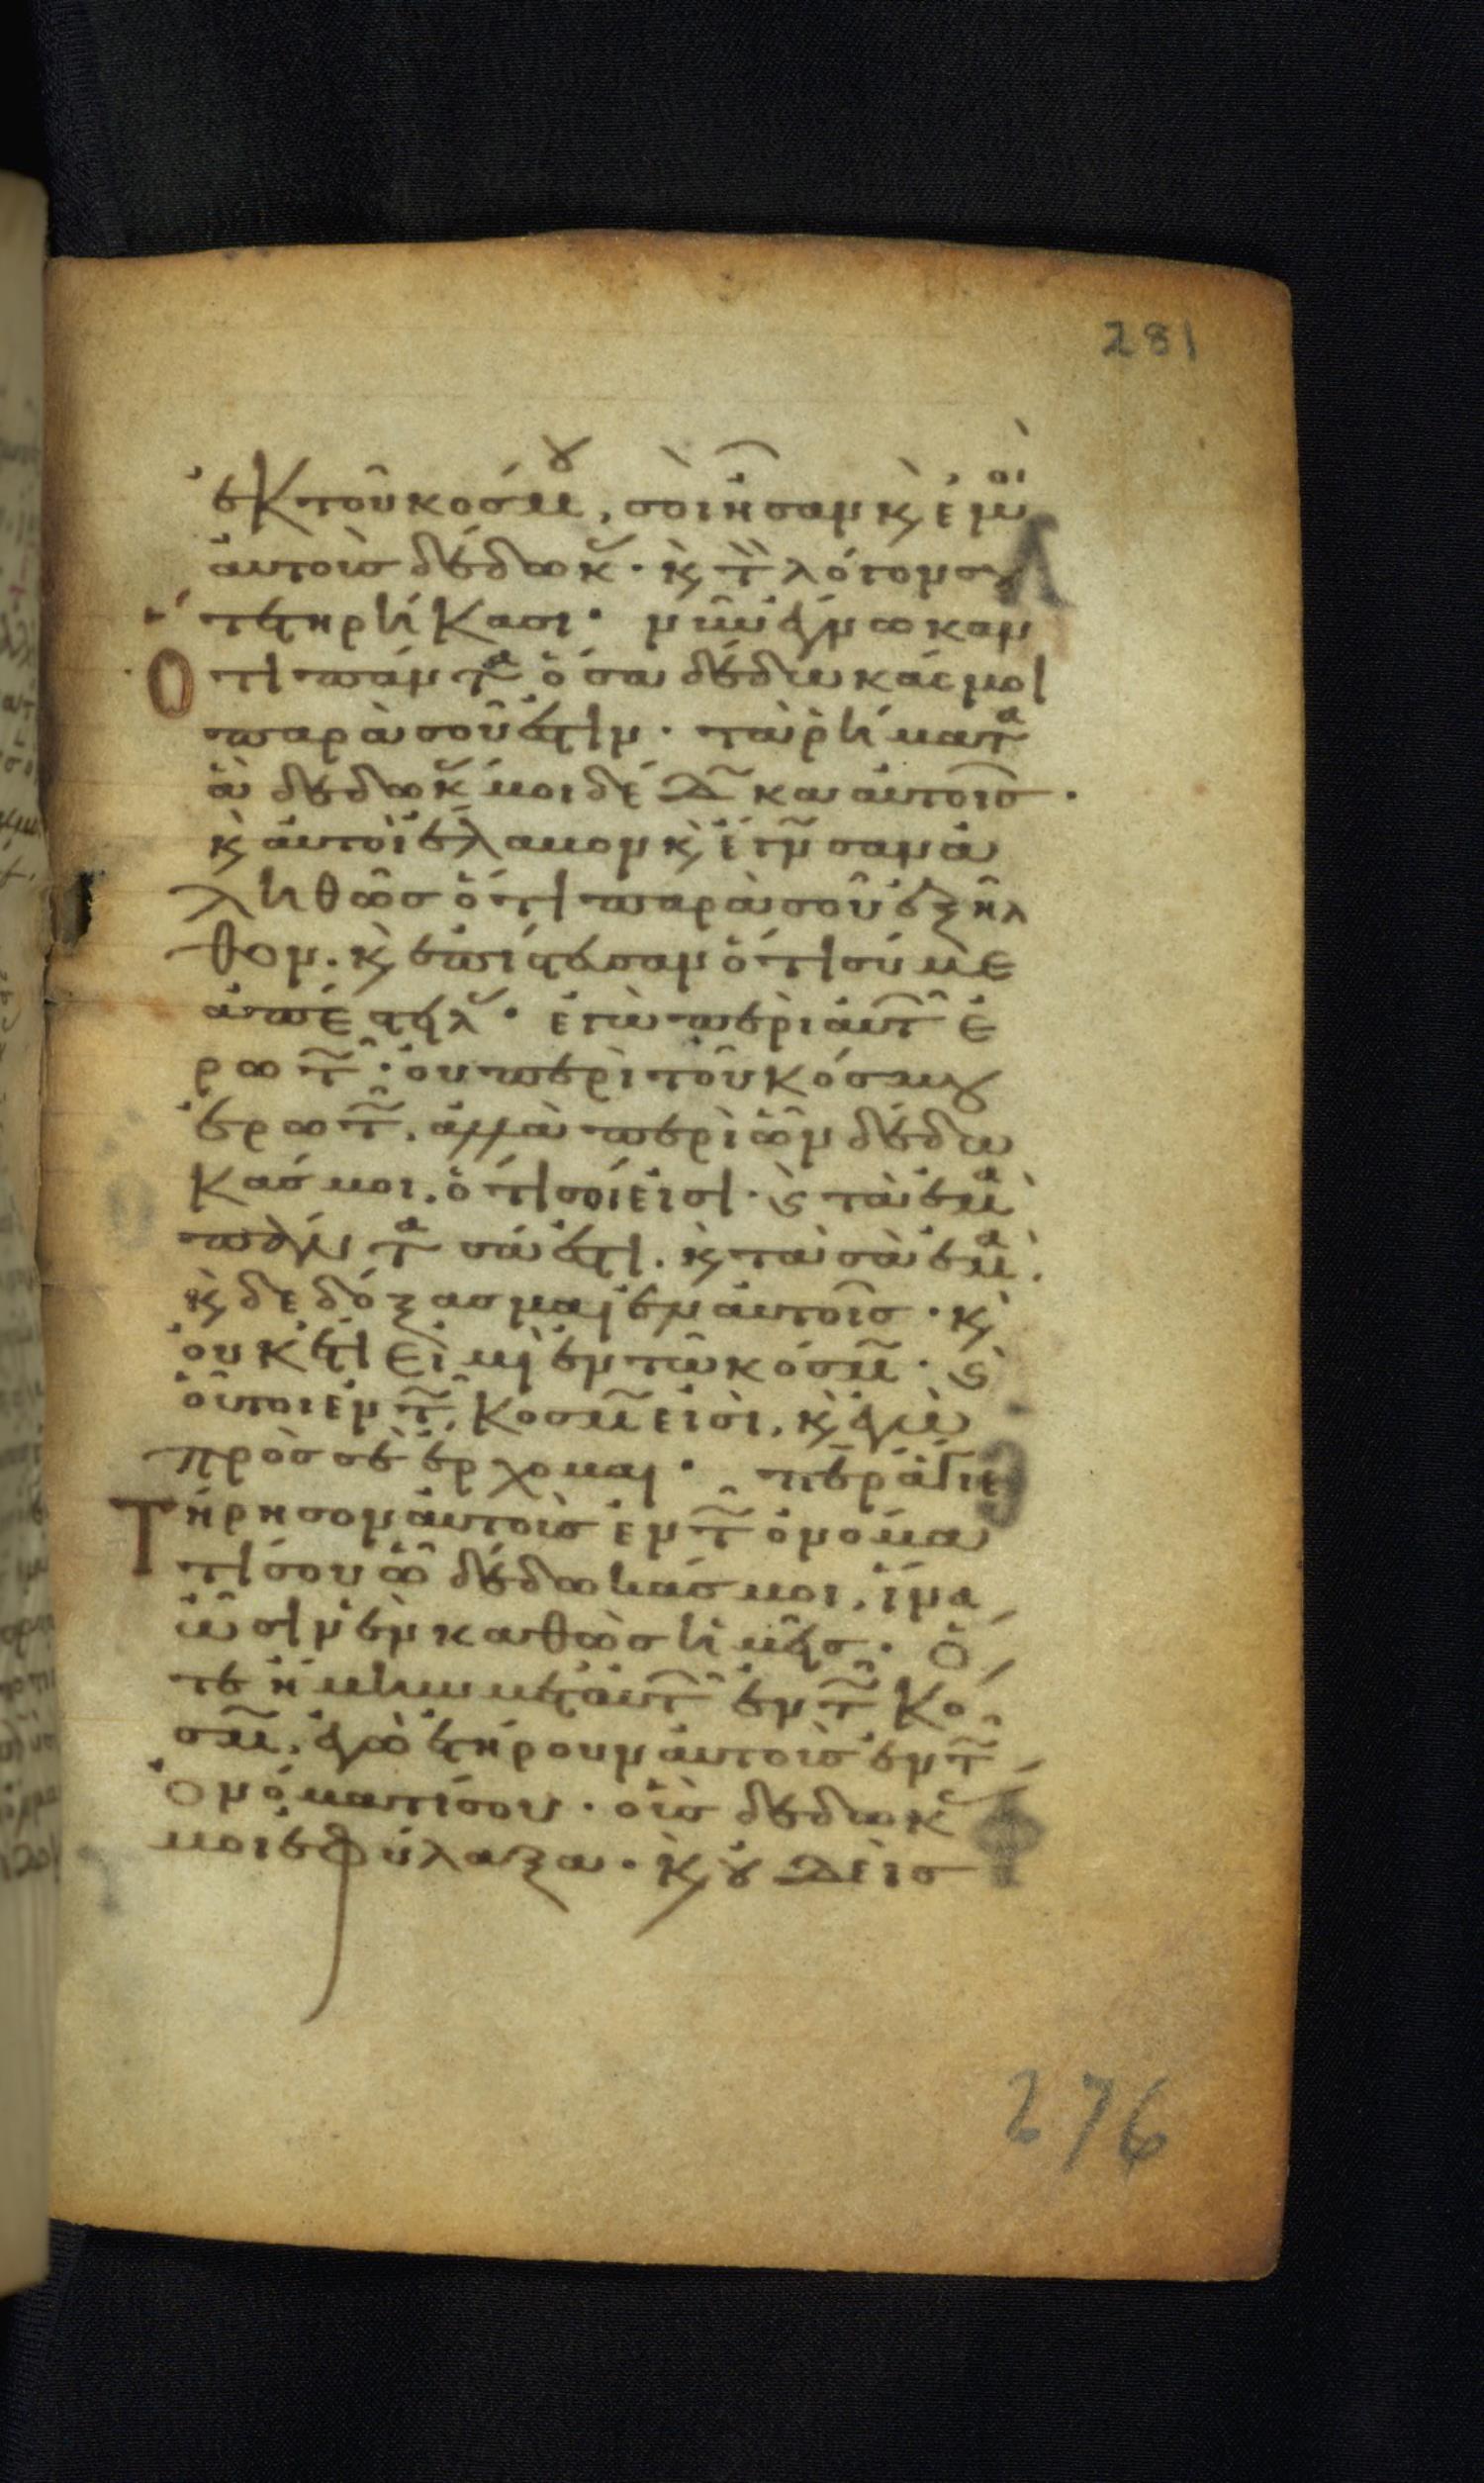 281
ἐκ τοῦ κόσμου, σοὶ ἦσαν κ̀ ἐμοὶ
αὐτοὺς δέδωκ̆· κ̀ τ̀ λόγον σου
τετηρήκασι· νῦν ἔγνωκαν
ὅτι πάντα ὅσα δέδωκάς μοι
παρὰ σοῦ ἐστιν· τὰ ῥήματα
ἃ δέδωκ̆ μοι δέδωκα αὐτοῖς·
κ̀ αὐτοὶ ἔλαβον κ̀ ἔγνωσαν ἀ
ληθῶς ὅτι παρὰ σοῦ ἐξῆλ
θον. κ̀ ἐπίστευσαν ὅτι σύ με
ἀπέστειλ̆· ἐγὼ περὶ αὐτ͂ ἐ
ρωτ͂· οὐ περὶ τοῦ κόσμου
ἐρωτ͂, ἀλλὰ περὶ ὧν δέδω
κάς μοι. ὅτι σοί εἰσι· κ̀ τὰ ἐμὰ
πάντα σά ἐστι. κ̀ τὰ σὰ ἐμὰ.
κ̀ δεδόξασμαι ἐν αὐτοῖς· κ̀
οὐκ ἔτι εἰμὶ ἐν τῶ κόσμ͂· κ̀
οὗτοι ἐν τ͂ κόσμ͂ εἰσὶ, κ̀ ἐγὼ
πρὸς σὲ ἔρχομαι· περ ἅγιε
τήρησον αὐτοὺς ἐν τ͂ ὀνόμα
τί σου ᾧ δέδωκάς μοι, ἵνα
ὦσιν ἓν καθὼς ἡμεῖς· ὅ
τε ἤμην μετ αὐτ͂ ἐν τ͂ κό
σμ͂, ἐγὼ ἐτήρουν αὐτοὺς ἐν τ͂
ὀνόματί σου· οὓς δέδωκ̆
μοι ἐφύλαξα· κ̀ οὐδεὶς
276